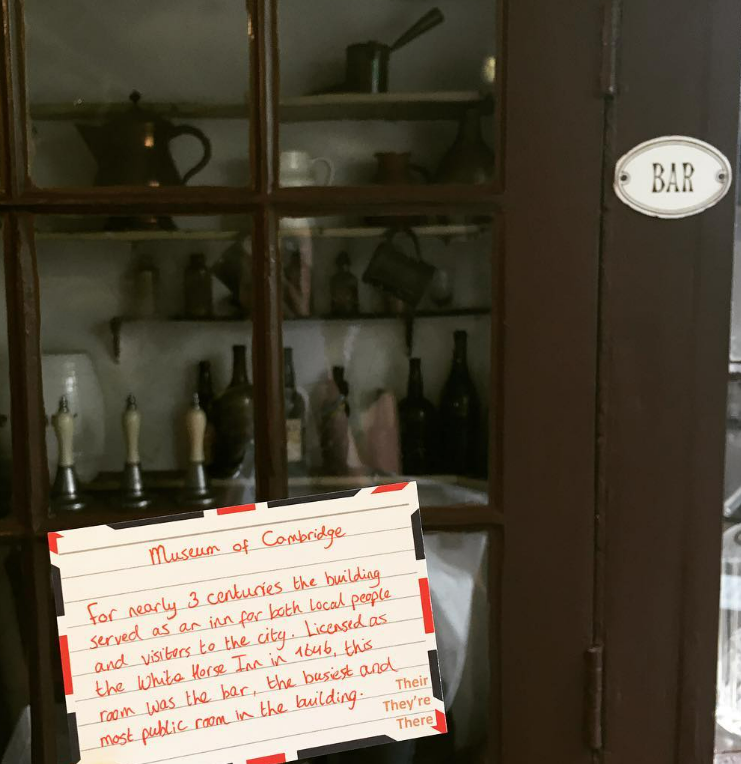 BAR
Museum of Cambridge
For nearly 3 centuries the building
served as an inn for both local people
and visitors to the city. Licensed as
the White Horse Inn in 1646, this
room was the bar, the busiest and
most public room in the building.
Their
They're
There